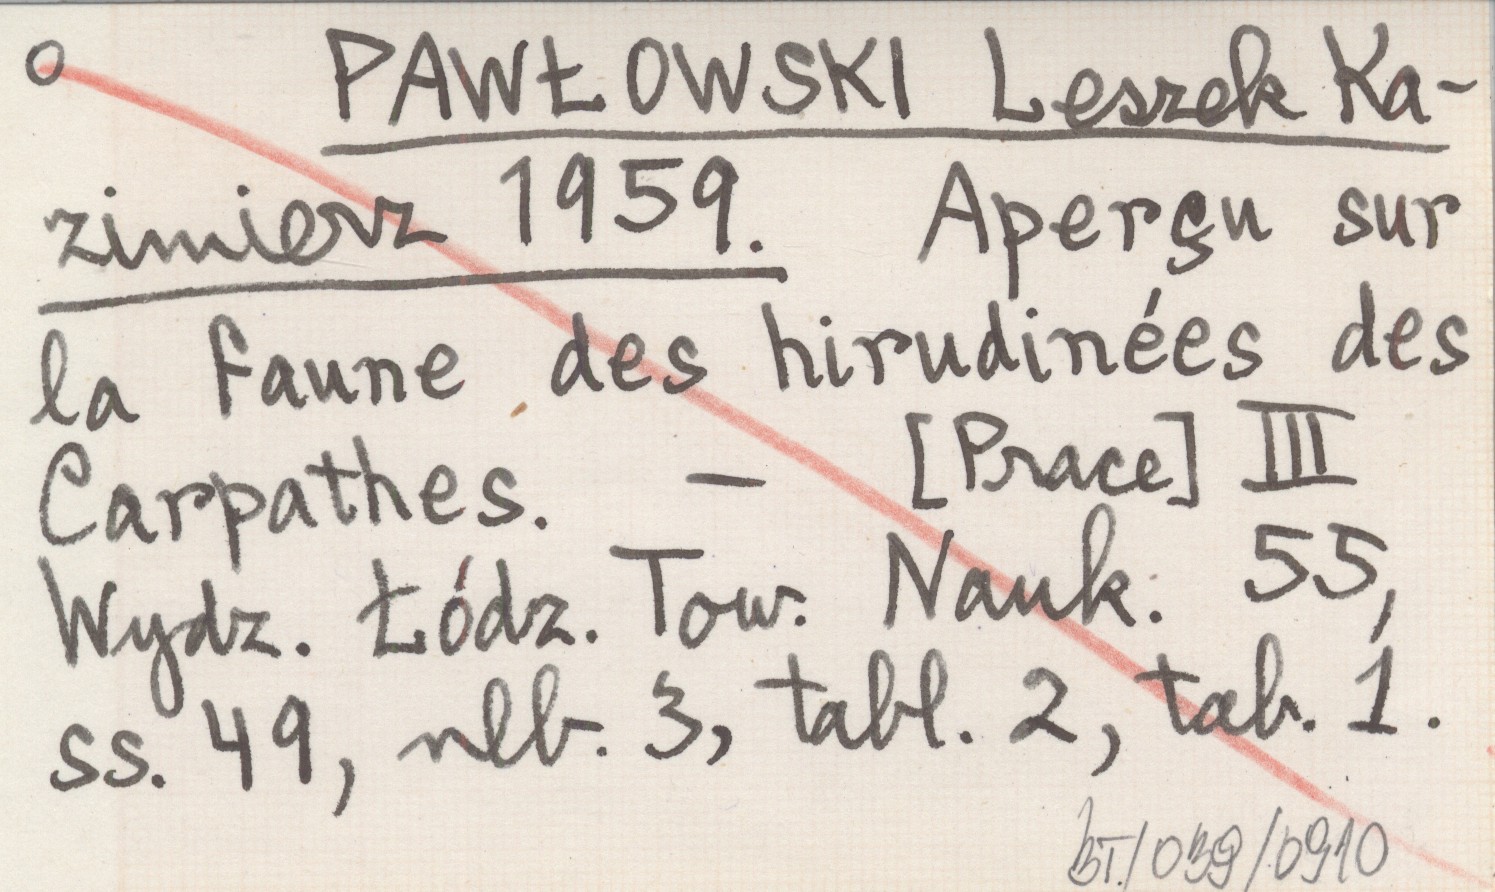 PAWŁOWSKI Leszek Ka-
zimierz 1959. Aperçu sur
la faune des hirudinées des
Carpathes. — [Prace] III
Wydz. Łódz. Tow. Nauk. 55,
ss. 49, nlb. 3, tabl. 2, tab. 1.
BT./039/0910